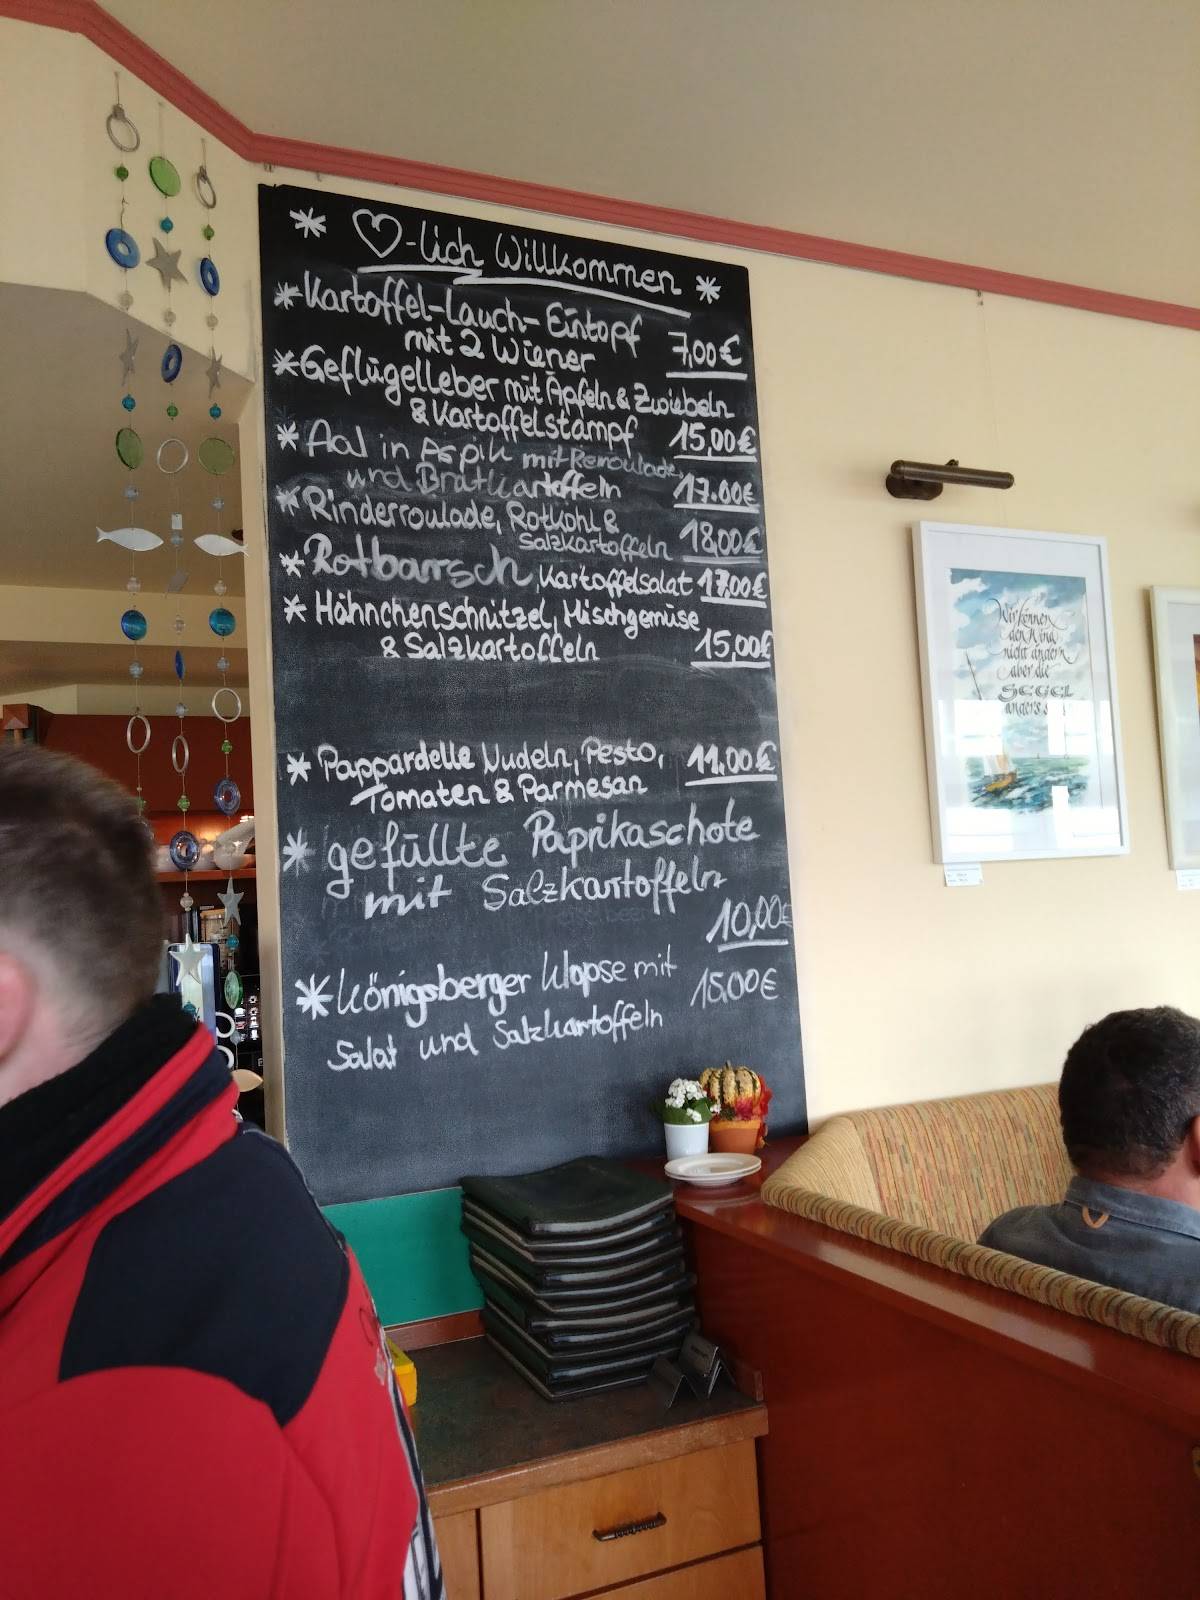 * ♡-lich Willkommen *
* Kartoffel-Lauch-Eintopf
mit 2 Wiener 7,00€
* Geflügelleber mit Äpfeln & Zwiebeln
& Kartoffelstampf 15,00€
* Aal in Aspik mit Remoulade,
und Bratkartoffeln 17.00€
* Rinderroulade, Rotkohl &
Salzkartoffeln 18,00€
* Rotbarsch, Kartoffelsalat 17,00€
* Hähnchenschnitzel, Mischgemüse
& Salzkartoffeln 15,00€
* Pappardelle Nudeln, Pesto, 11,00€
Tomaten & Parmesan
* gefüllte Paprikaschote
mit Salzkartoffeln
10,00€
* Königsberger Klopse mit 15.00€
Salat und Salzkartoffeln
Wir können
den Wind
nicht ändern
aber die
SEGEL
anders